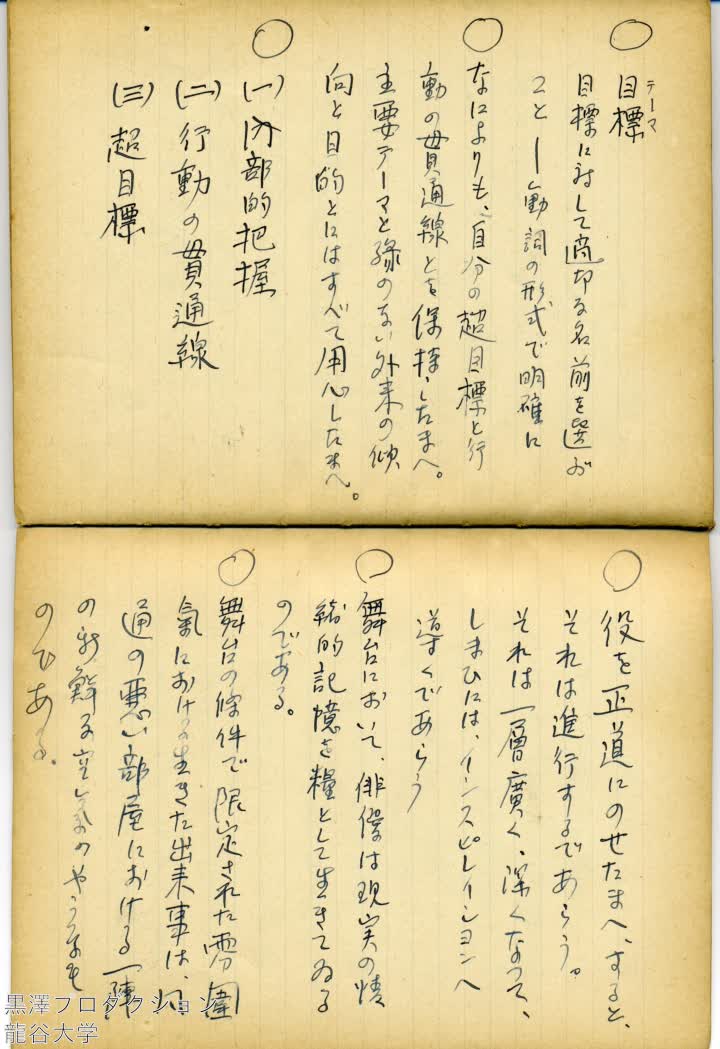 ○ 目標
テーマ
目標に対して適切な名前を選ぶ
こと―動詞の形式で明確に
○ なによりも、自分の超目標と行
動の貫通線とを保持したまへ。
主要テーマと縁のない外来の傾
向と目的とにはすべて用心したまへ。
○ (一) 内部的把握
(二) 行動の貫通線
(三) 超目標
○ 役を正道にのせたまへ、すると、
それは進行するであらう。
それは一層廣く、深くなつて、
しまひには、インスピレイションへ
導くであらう
○ 舞台において、俳優は現実の情
緒的記憶を糧として生きてゐる
のである。
○ 舞台の條件で限定された雰囲
氣における生きた出来事は、風
通の悪い部屋における一陣
の新鮮な空気のやうなも
のである。
黒澤プロダクション
龍谷大学